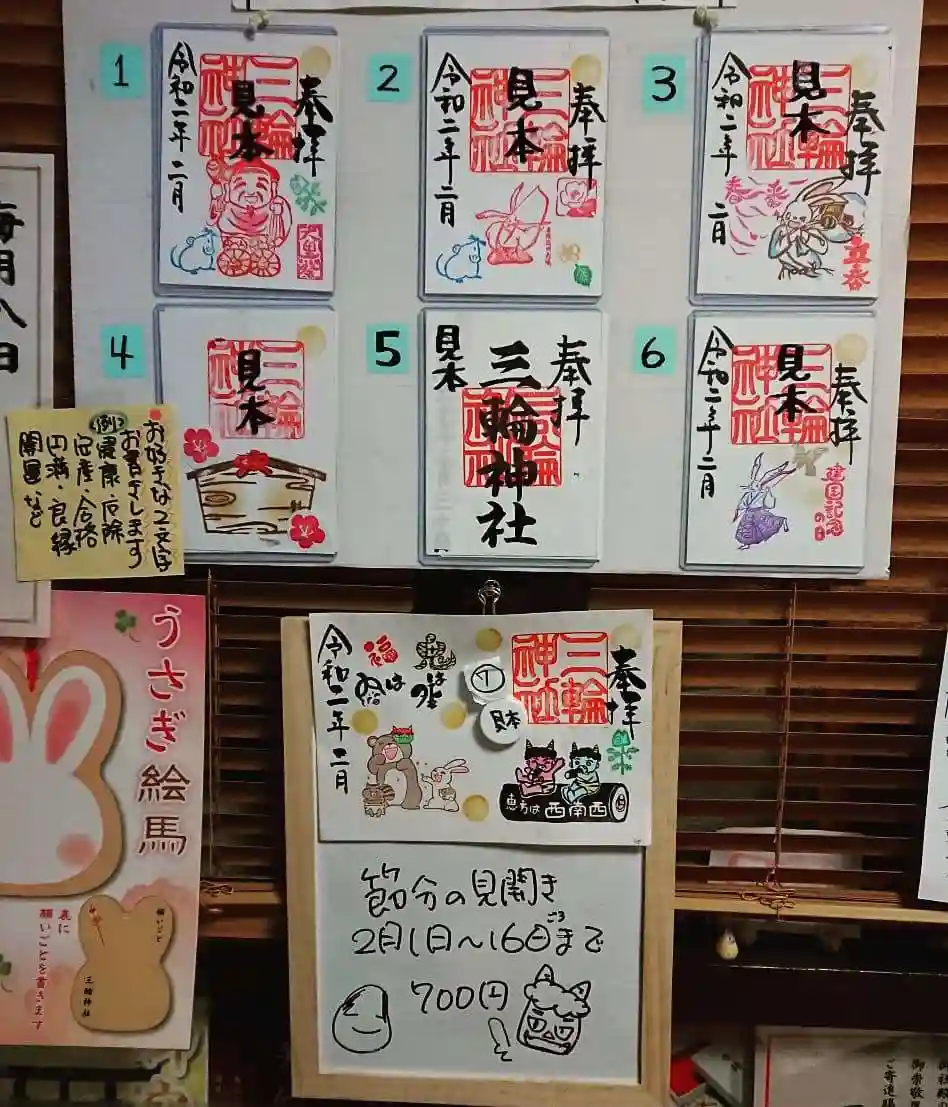 1
奉拝
三輪神社
見本
令和二年二月
2
奉拝
三輪神社
見本
令和二年二月
3
奉拝
三輪神社
見本
令和二年
二月
立春
4
三輪神社
見本
5
奉拝
三輪神社
見本
6
奉拝
三輪神社
見本
令和二年二月
建国記念
の日
お好きな2文字
お書きします
(例)
健康・厄除
安産・合格
円満・良縁
開運など
毎月八日
うさぎ絵馬
裏に
願いごとを書きます
願いごと
三輪神社
奉拝
三輪神社
⑦
見本
福は
令和二年二月
恵方は西南西
節分の見開き
2月1日〜16日ごろまで
700円